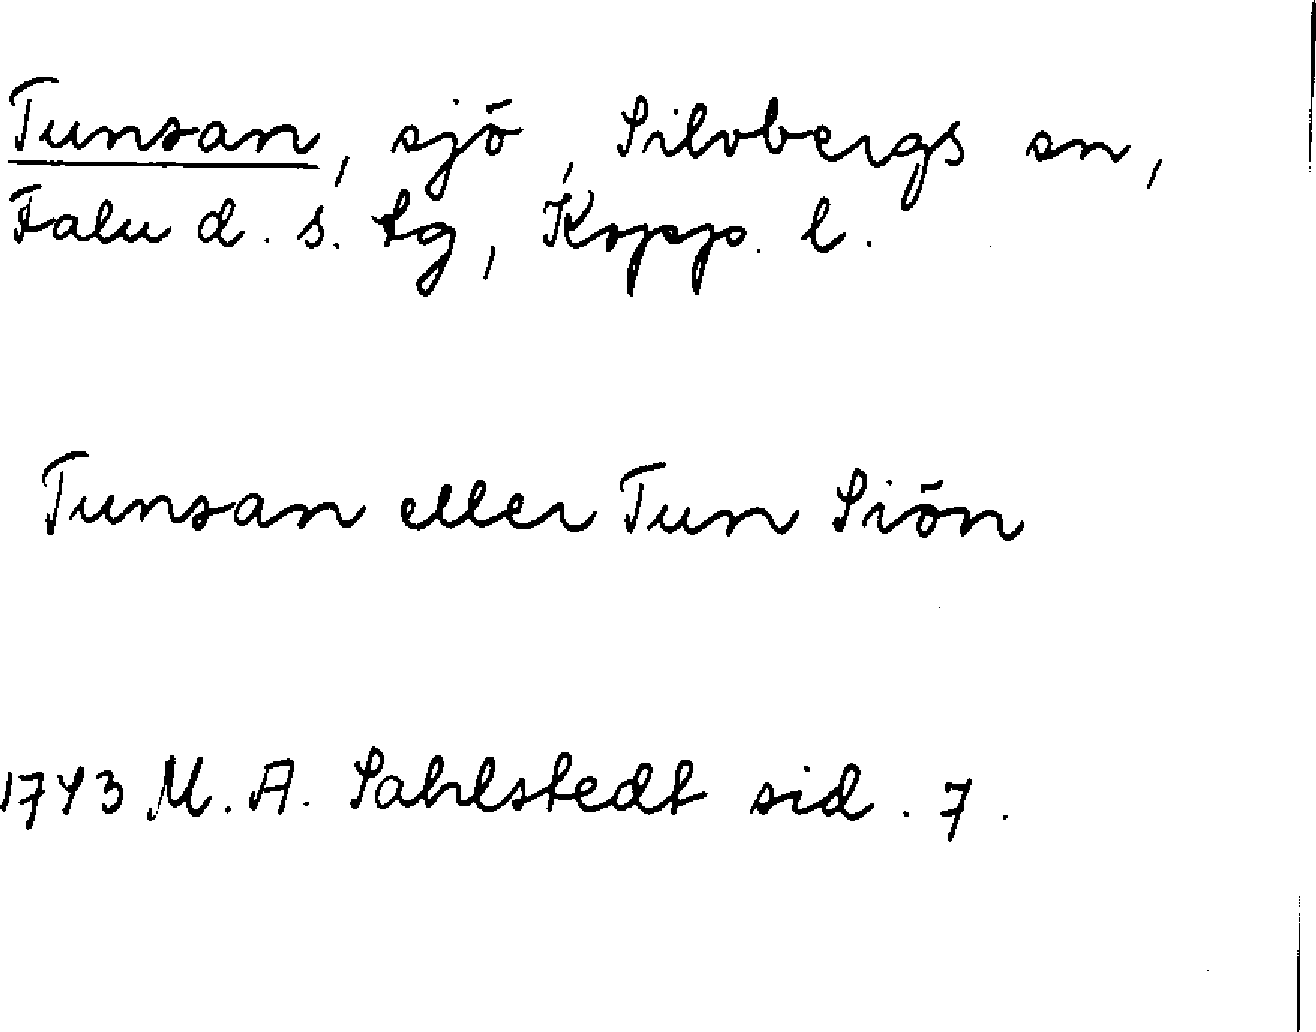 Tunsan, sjö, Silvbergs sn,
Falu d. s. tg, Kopp. l.
Tunsan eller Tun Siön
1743 M. A. Sahlstedt sid. 7.